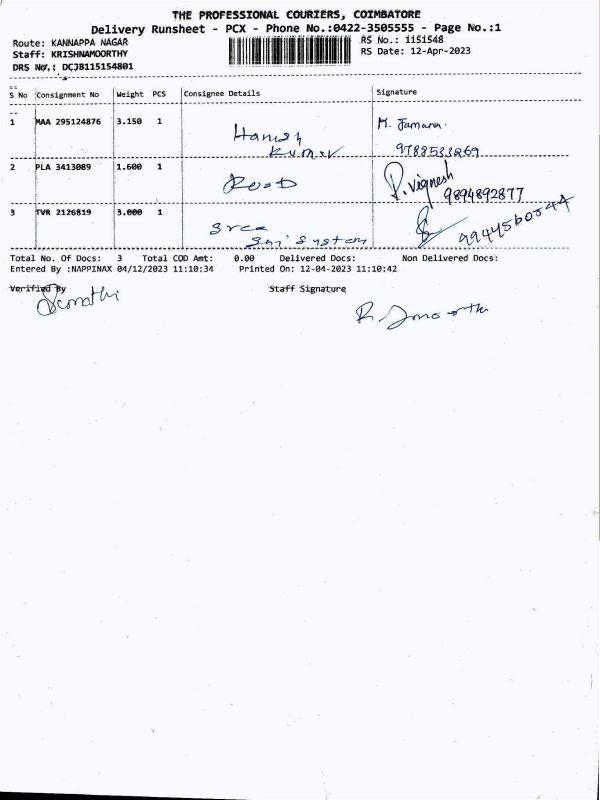 THE PROFESSIONAL COURIERS, COIMBATORE
Delivery Runsheet - PCX - Phone No.:0422-3505555 - Page No.:1
Route: KANNAPPA NAGAR
RS No.: 1151548
Staff: KRISHNAMOORTHY
RS Date: 12-Apr-2023
DRS No.: DCJB115154801
S No Consignment No Weight PCS Consignee Details Signature
1 MAA 295124876 3.150 1 Harish M. Jamuna.
Kumar 9788533269
2 PLA 3413089 1.600 1 P. Vignesh
9894892877
3 TVR 2126819 3.000 1 Sree
Sai System
Total No. Of Docs: 3 Total COD Amt: 0.00 Delivered Docs: Non Delivered Docs:
Entered By :NAPPINAX 04/12/2023 11:10:34 Printed On: 12-04-2023 11:10:42
Verified By Staff Signature